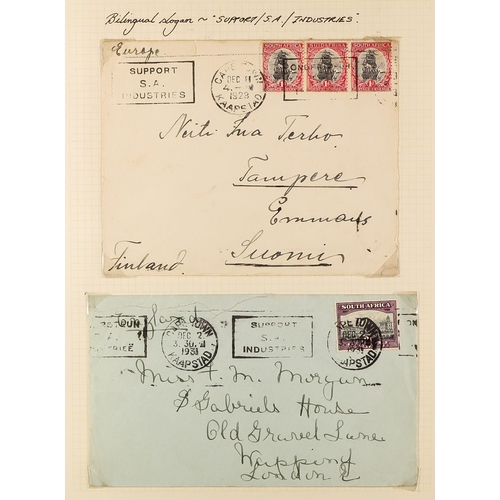 Bilingual slogan ~ "SUPPORT/S.A./INDUSTRIES".
Europe
SUPPORT
S.A.
INDUSTRIES
CAPE TOWN
DEC 11
1928
KAAPSTAD
SOUTH AFRICA
SOUTH AFRICA
Neiti Ina Terho
Tampere
Emmaus
Suomi
Finland.
CAPE TOWN
DEC 2
3.30
1931
KAAPSTAD
SUPPORT
S.A.
INDUSTRIES
SOUTH AFRICA
KAAPSTAD
Miss I. M. Morgan
Gabriels House
Old Gravel Lane
Wapping
London E